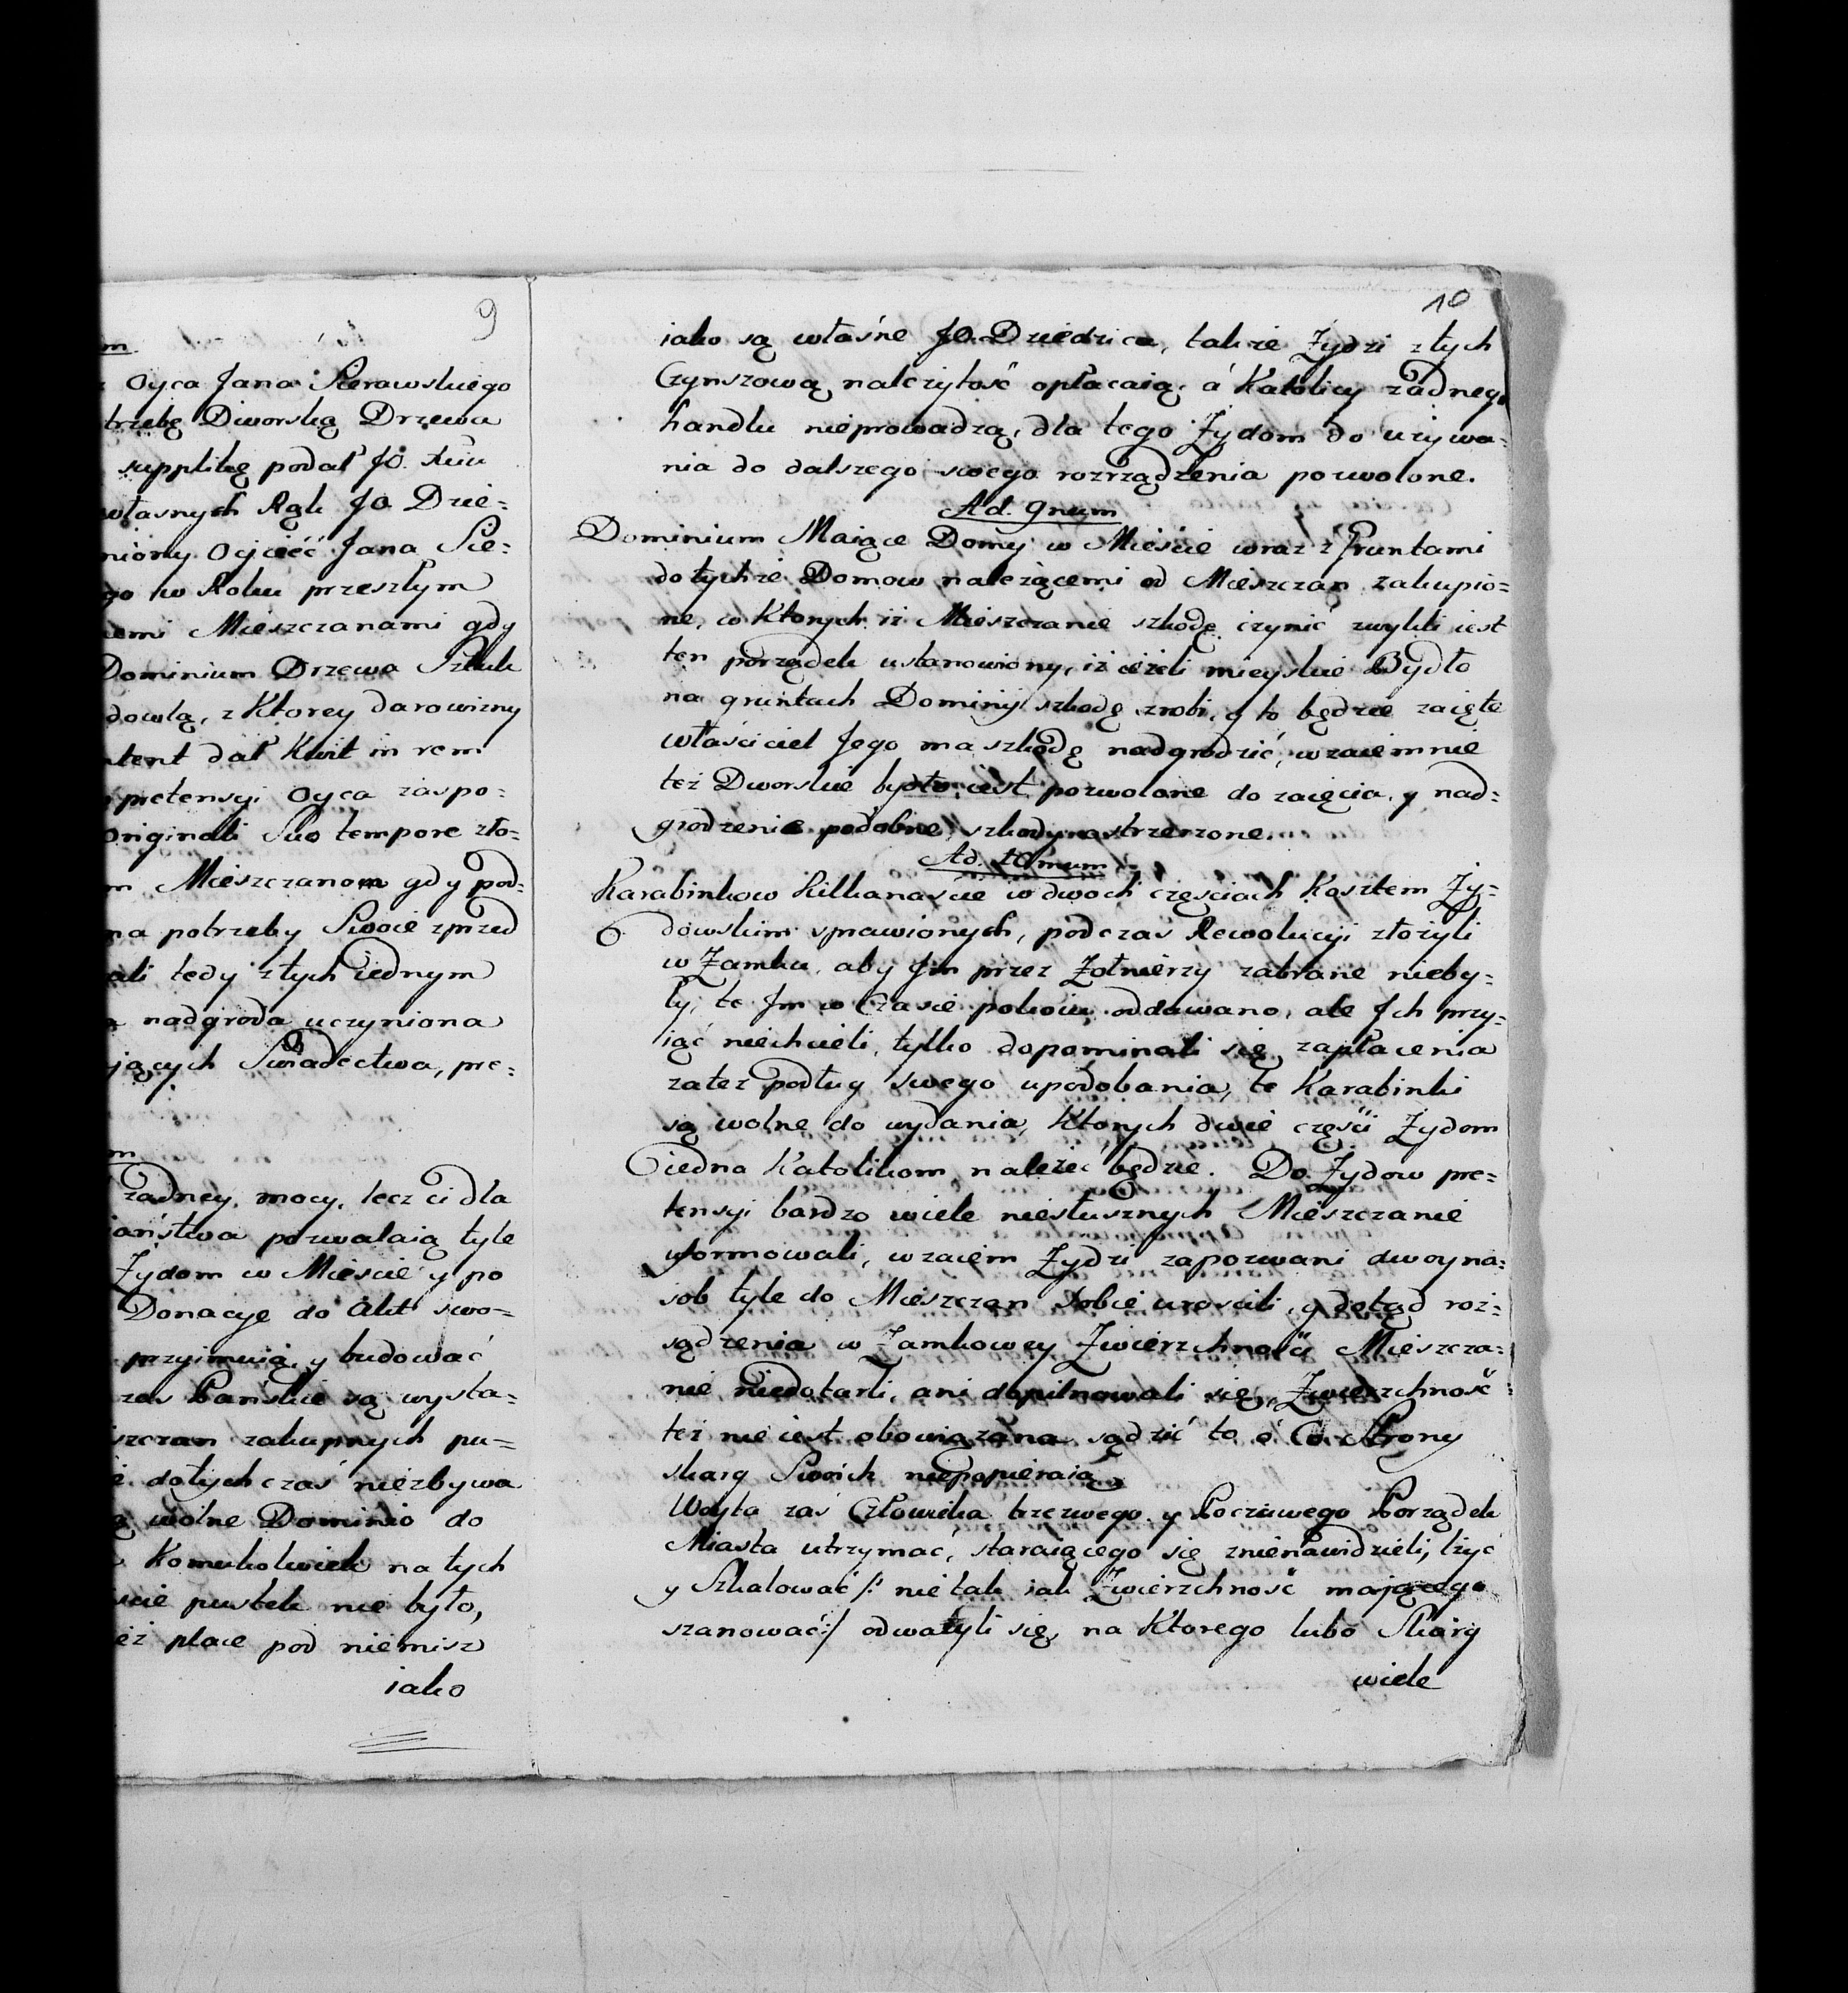 9
m
Oyca Jana Sierawskiego
trzebę Dworską Drzewa
supplikę podał JO. Xciu
własnych Rąk JO Dzie=
niony Ojcieć Jana Sie=
go w Roku przeszłym
emi Mieszczanami gdy
Dominium Drzewa Sztuk
dowlą, z Ktorey darowizny
tent dał Kwit in rem
pretensyi Oyca zaspo=
Originali Suo tempore zło=
m Mieszczanom gdy pod=
na potrzeby Swoie zprzed
ali tedy z tych iednym
nadgroda uczyniona
jących Swiadectwa, pre=
m
zadney mocy, lecz ci dla
iaństwa pozwalaią tyle
Zydom w Miescie y po
Donacye do Akt swo=
przyimuią y budować
zas Pańskie są wysta=
szczan zakupnych pu=
dotychczaś niezbywa
wolne Dominio do
Komukolwiek na tych
scie pustek nie było,
eż place pod niemisz
iako
10
iako są własne JO. Dziedzica, takze Zydzi z tych
Czynszową nalezytość opłacaią, á Katolicy zadnego
handlu nieprowadzą, dla tego Zydom do uzywa=
nia do dalszego swego rozrządzenia pozwolone.
Ad. 9num
Dominium Maiące Domy w Mieście wraz z Gruntami
do tychze Domow nalezącemi od Mieszczan zakupio=
ne, w Ktorych iż Mieszczanie szkodę czynić zwykli iest
ten porządek ustanowiony, iż ieżeli mieyskie Bydło
na gruntach Dominij szkodę zrobi, y to będzie zaięte
właściciel Jego ma szkodę nadgrodzić, wzaiemnie
też Dworskie bydło iest pozwolone do zaięcia, y nad=
grodzenie podobne szkody ostrzerzone.
Ad. 10mum
Karabinkow Kilkanaście w dwoch częsciach Kosztem Zy=
6 dowskim sprawionych, podczas Rewolucyi złożyli
w Zamku, aby Jm przez Zołnierzy zabrane nieby=
ły, te Jm w Czasie pokoiu oddawano, ale Jch przy=
iąć niechcieli, tylko dopominali się zapłacenia
zatez podług swego upodobania, te Karabinki
są wolne do wydania, Ktorych dwie części Zydom
iedna Katolikom nalezeć będzie. Do Zydow pre=
tensyi bardzo wiele niesłusznych Mieszczanie
uformowali, wzaiem Zydzi zapozwani dwoyna=
sob tyle do Mieszczan sobie uroscili, y dotąd roz=
sądzenia w Zamkowey Zwierzchności Mieszcza=
nie niedotarli, ani dopilnowali się, Zwierzchność
też nie iest obowiązana sądzić to ó Co Strony
skarg Swoich niepopieraią
Woyta zas Człowieka trzezwego y Poczciwego Porządek
Miasta utrzymać, staraiącego się znienawidzieli, lżyć
y Szkalować /: nie tak iak Zwierzchność mającego
szanować :/ odwazyli się, na Ktorego lubo Skarg
wiele